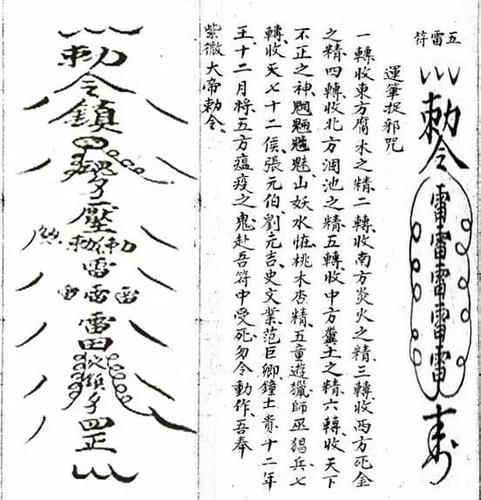 五雷符
勅令
雷雷雷雷雷
運筆捉邪咒
一轉收東方腐木之精二轉收南方炎火之精三轉收西方死金
之精四轉收北方溷池之精五轉收中方糞土之精六轉收天下
不正之神魍魎魑魅、山妖水怪桃木杏精、五童遊獵師巫猖兵七
轉收天七十二侯、張元伯劉元吉、史文業、范巨卿、鐘士貴、十二年
王、十二月將五方瘟疫之鬼、赴吾符中受死勿令動作、吾奉
紫微大帝勅令、
勅令鎮
壓
雷
雷雷雷
雷